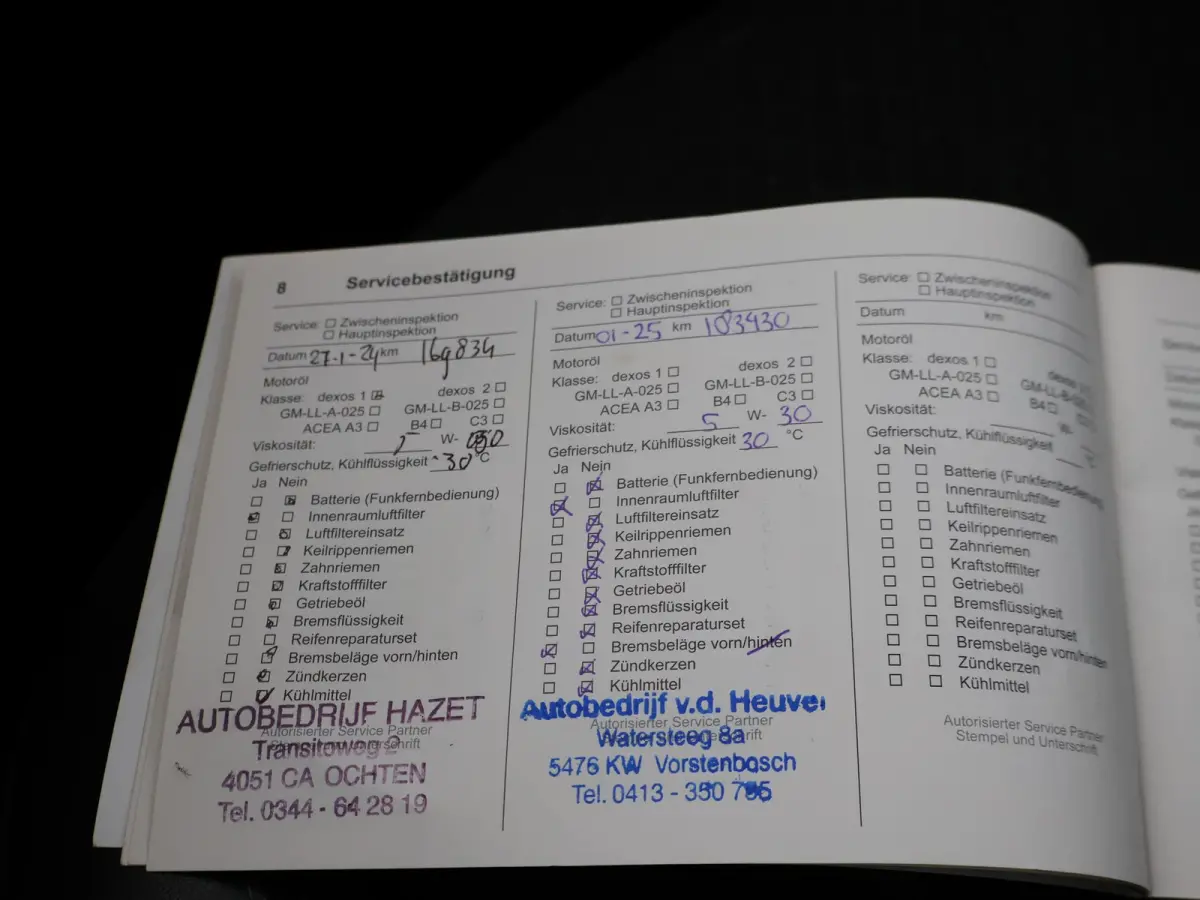 8 Servicebestätigung
Service: Zwischeninspektion
Hauptinspektion
Datum 27-1-24 km 169834
Motoröl
Klasse: dexos 1 dexos 2
GM-LL-A-025 GM-LL-B-025
ACEA A3 B4 C3
Viskosität: 5 W- 30
Gefrierschutz, Kühlflüssigkeit -30 °C
Ja Nein
Batterie (Funkfernbedienung)
Innenraumluftfilter
Luftfiltereinsatz
Keilrippenriemen
Zahnriemen
Kraftstofffilter
Getriebeöl
Bremsflüssigkeit
Reifenreparaturset
Bremsbeläge vorn/hinten
Zündkerzen
Kühlmittel
Autorisierter Service Partner
AUTOBEDRIJF HAZET
Transitoweg 2
4051 CA OCHTEN
Tel. 0344 - 64 28 19
Service: Zwischeninspektion
Hauptinspektion
Datum 01-25 km 183930
Motoröl
Klasse: dexos 1 dexos 2
GM-LL-A-025 GM-LL-B-025
ACEA A3 B4 C3
Viskosität: 5 W- 30
Gefrierschutz, Kühlflüssigkeit 30 °C
Ja Nein
Batterie (Funkfernbedienung)
Innenraumluftfilter
Luftfiltereinsatz
Keilrippenriemen
Zahnriemen
Kraftstofffilter
Getriebeöl
Bremsflüssigkeit
Reifenreparaturset
Bremsbeläge vorn/hinten
Zündkerzen
Kühlmittel
Autobedrijf v.d. Heuvel
Autorisierter Service Partner
Watersteeg 8a
5476 KW Vorstenbosch
Tel. 0413 - 350 785
Service: Zwischeninspektion
Hauptinspektion
Datum km
Motoröl
Klasse: dexos 1 dexos
GM-LL-A-025 GM-LL-B-025
ACEA A3 B4
Viskosität: W-
Gefrierschutz, Kühlflüssigkeit
Ja Nein
Batterie (Funkfernbedienung)
Innenraumluftfilter
Luftfiltereinsatz
Keilrippenriemen
Zahnriemen
Kraftstofffilter
Getriebeöl
Bremsflüssigkeit
Reifenreparaturset
Bremsbeläge vorn/hinten
Zündkerzen
Kühlmittel
Autorisierter Service Partner
Stempel und Unterschrift